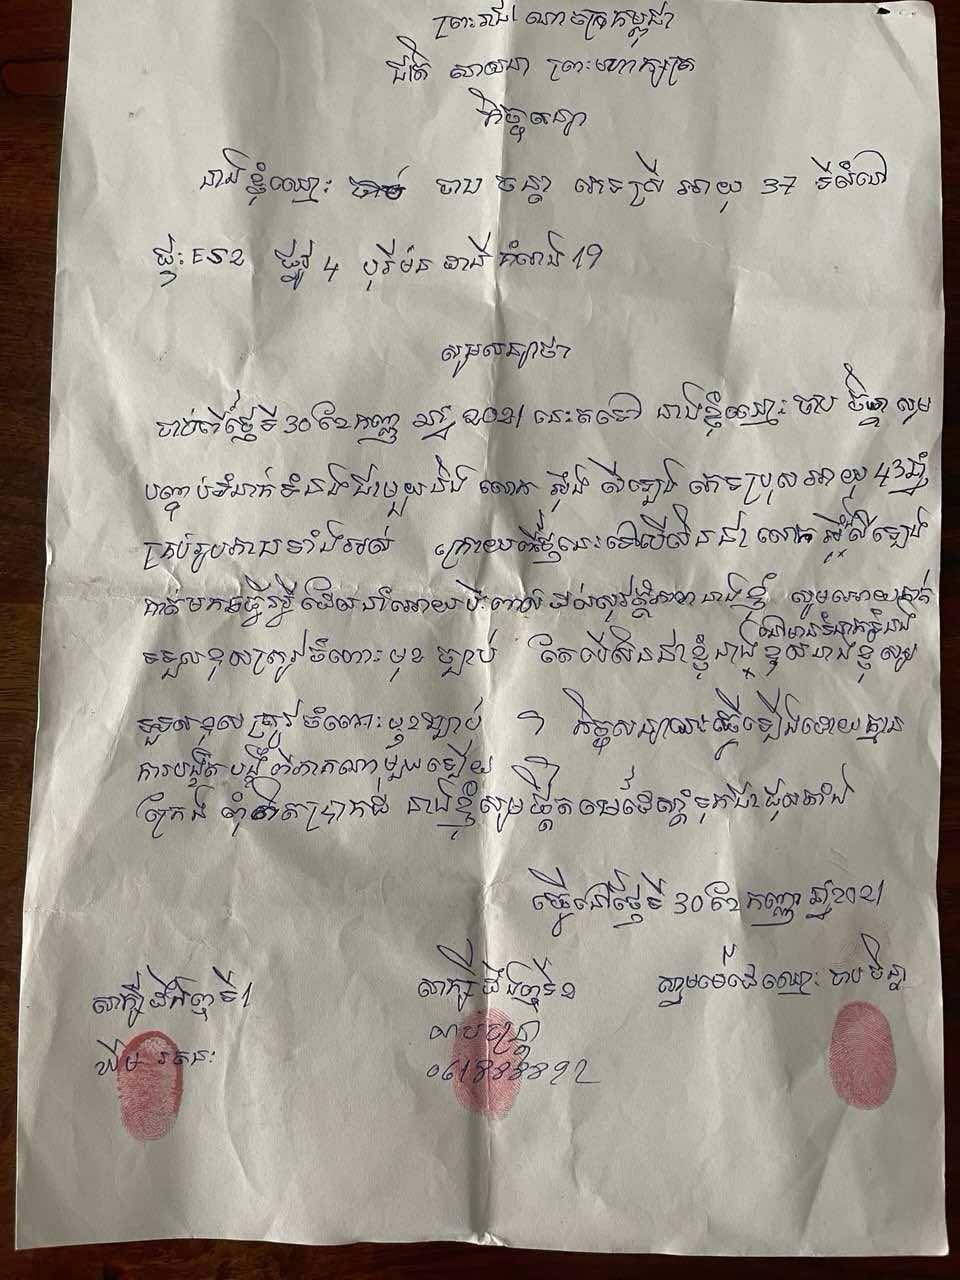 ព្រះរាជាណាចក្រកម្ពុជា
ជាតិ សាសនា ព្រះមហាក្សត្រ
កិច្ចសន្យា
នាងខ្ញុំឈ្មោះ ចាប ចន្ថា ភេទស្រី អាយុ 37 ទីលំនៅ
ផ្ទះ E52 ផ្លូវ 4 បុរីម៉ន ដានី គំរោង 19
សូមសន្យាថា
ចាប់ពីថ្ងៃទី 30 ខែ កញ្ញា ឆ្នាំ 2021 នេះតទៅ នាងខ្ញុំឈ្មោះ ចាប សូម
បញ្ចប់ទំនាក់ទំនងជាមួយនឹង លោក ភេទប្រុស អាយុ 43 ឆ្នាំ
គ្រប់រូបភាពទាំងអស់ ក្រោយពីថ្ងៃនេះទៅបើសិនជា លោក
គាត់មកធ្វើអ្វី ដែលនាំអោយប៉ះពាល់ដល់សុវត្ថិភាពនាងខ្ញុំ សូមអោយគាត់
ទទួលខុសត្រូវចំពោះមុខច្បាប់ តែបើសិនជាខ្ញុំនាងខ្ញុំ
នៅមានទំនាក់ទំនង
ទទួលខុសត្រូវចំពោះមុខច្បាប់ ។ កិច្ចសន្យានេះធ្វើឡើងដោយគ្មាន
ការបង្ខិតបង្ខំពីភាគណាមួយឡើយ
ពុំពិតប្រាកដ នាងខ្ញុំសូមផ្តិតមេដៃស្តាំទុកជាភស្តុតាង
ធ្វើនៅថ្ងៃទី 30 ខែ កញ្ញា ឆ្នាំ 2021
សាក្សីដឹងឮទី1
សាក្សី ដឹងឮទី2
ស្នាមមេដៃឈ្មោះ ចាប
រតនៈ